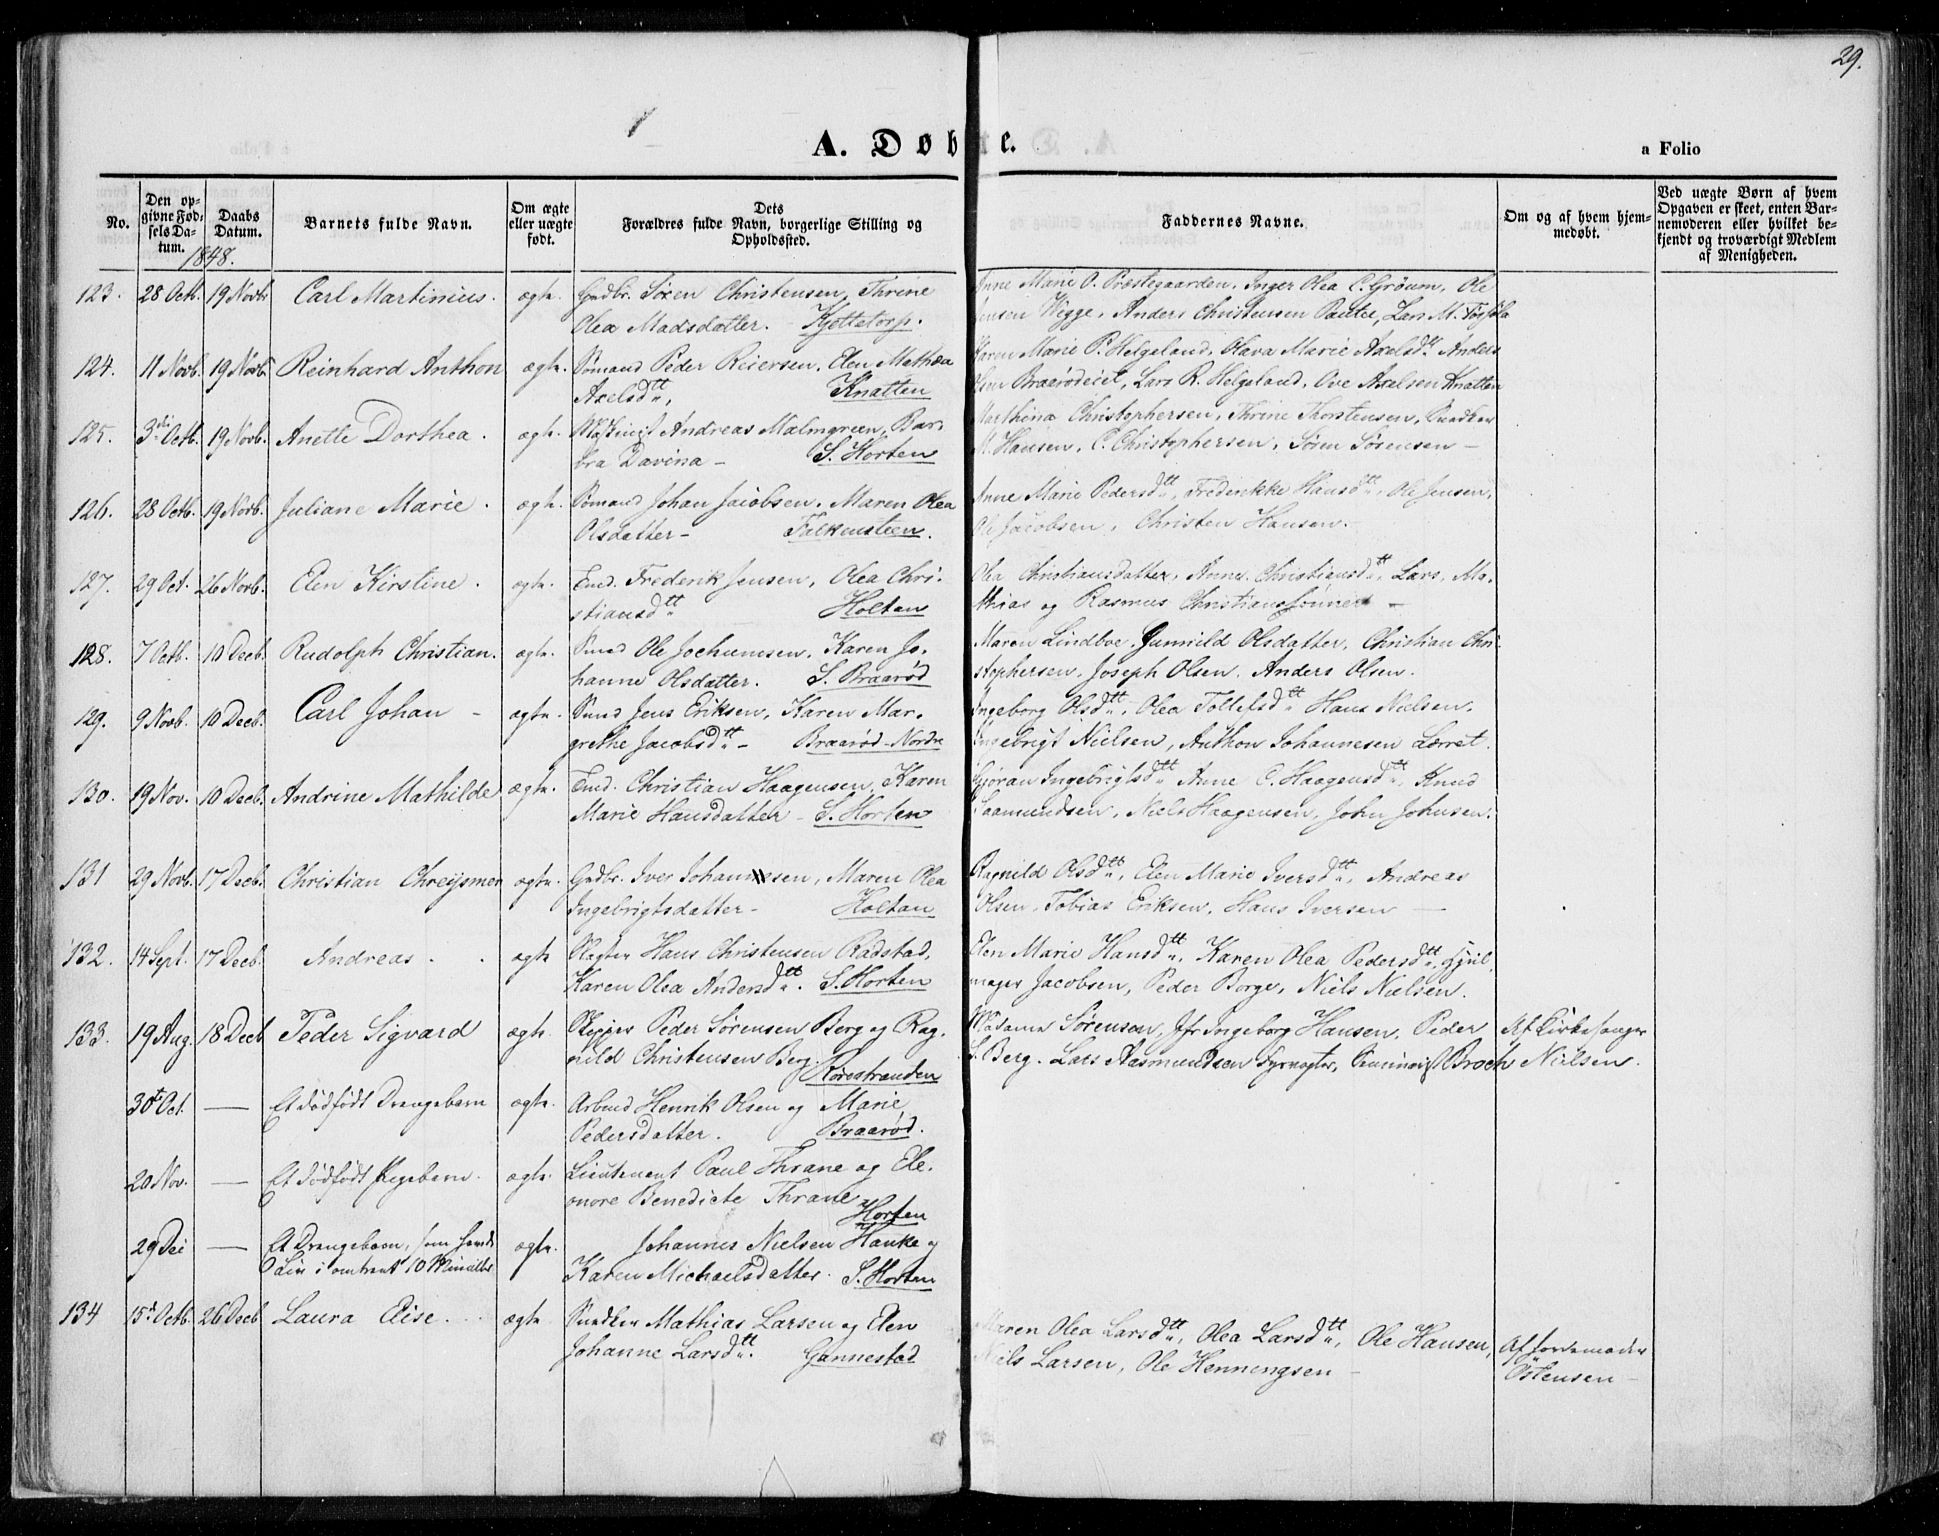 29.
A. Døbte.
a Folio
No.
Den opgivne Fødselsdatum.
1848.
Daabs Datum.
Barnets fulde Navn.
Om ægte eller uægte født.
Forældres fulde Navn, Dets borgerlige Stilling og Opholdssted.
Faddernes Navne.
Om og af hvem hjemmedøbt.
Ved uægte Børn af hvem Opgaven er skeet, enten Barnemoderen eller hvilket bekjendt og troværdigt Medlem af Menigheden.
123. 28 Octb. 19 Novb. Carl Martinius. ægte. Grdbr. Sören Christensen, Thrine
Olea Madsdatter. Kjettetorp.
Anne Marie O. Præstegaarden, Inger Olea C. Gröum, Ole
Jensen Wigge, Anders Christensen Pauter, Lars M.
124. 11 Novb. 19 Novb. Reinhard Anthon ægte. Sömand Peder Reiersen, Elen Mathea
Axelsdtt, Knatten
Karen Marie P. Helgeland, Olava Marie Axelsdtt Anders
Olsen Braarödeiet, Lars R. Helgeland, Ove Axelsen Knatten
125. 3die Octb. 19 Novb. Anette Dorthea. ægte. Andreas Malmgreen, Bar-
bra Davina - S. Horten
Marthina Christophersen, Thrine Thorstensen, Snedker
M. Hansen, C. Christophersen, Sören Sörensen -
126. 28 Octb. 19 Novb. Juliane Marie. ægte. Sömand Johan Jacobsen, Maren Olea
Olsdatter - Falkensteen.
Anne Marie Pedersdtt, Frederikke Hansdtt, Ole Jensen,
Ole Jacobsen, Christen Hansen.
127. 29 Oct. 26 Novb. Elen Kirstine. ægte. Tmd. Frederik Jensen, Olea Chri-
stiansdtt Holtan
Olea Christiansdatter, Anne Christiansdtt, Lars, Ma-
thias og Rasmus Christianssönner -
128. 7 Octb. 10 Decb. Rudolph Christian. ægte. Smed Ole Jochumsen, Karen Jo-
hanne Olsdatter. S. Braaröd
Maren Lindboe, Gunnild Olsdatter, Christian Chri-
stophersen, Joseph Olsen, Anders Olsen.
129. 9 Novb. 10 Decb. Carl Johan - ægte. Smed Jens Eriksen, Karen Mar-
grethe Jacobsdtt - Braaröd-Nordre
Ingeborg Olsdtt, Olea Tollefsdtt Hans Nielsen,
Ingebrigt Nielsen, Anthon Johannesen Lerret.
130. 19 Nov. 10 Decb. Andrine Mathilde ægte. Tmd. Christian Haagensen, Karen
Marie Hansdatter - S. Horten
Gjöran Ingebrigtsdtt Anne C. Haagensdtt, Knud
Saamundsen, Niels Haagensen, John Johnsen.
131 29 Novb. 17 Decb. Christian Chreysmer ægte. Grdbr. Iver Johannesen, Maren Olea
Ingebrigtsdatter - Holtan
Ragnild Olsdtt, Elen Marie Iversdtt, Andreas
Olsen, Tobias Eriksen, Hans Iversen —
132. 14 Sept. 17 Decb. Andreas. ægte Slagter Hans Christensen Radstad,
Karen Olea Andersdtt. S. Horten
Elen Marie Hansdtt, Karen Olea Pedersdtt, Hjul-
mager Jacobsen, Peder Borge, Niels Nielsen.
133. 19 Aug. 18 Decb Peder Sigvard ægte. Skipper Peder Sörensen Berg og Rag-
nild Christensen Berg. Rörestranden
Madame Sörensen, Jfr Ingeborg Hansen, Peder
S. Berg. Lars Aasmundsen Fyrvogter, Broch
Af Kirkesanger
Nielsen.
30te Oct. — Et dödfödt Drengebarn ægte. Arbmd Henrik Olsen og Marie
Pedersdatter. Braaröd.
20 Nov. — Et dödfödt Pigebarn. ægte. Lieutenant Paul Thrane og Ele-
onore Benedicte Thrane
Horten
29 Dec — Et Drengebarn, som havde
Liv i omtrent 10 Minutter ægte. Johannes Nielsen Hanke og
Karen Michaelsdatter. S. Horten
134 15de Octb. 26 Decb Laura Elise. ægte Snedker Mathias Larsen og Elen
Johanne Larsdtt. Gannestad
Maren Olea Larsdtt, Olea Larsdtt, Ole Hansen,
Niels Larsen, Ole Henningsen -
Af Jordemoder
Östensen -